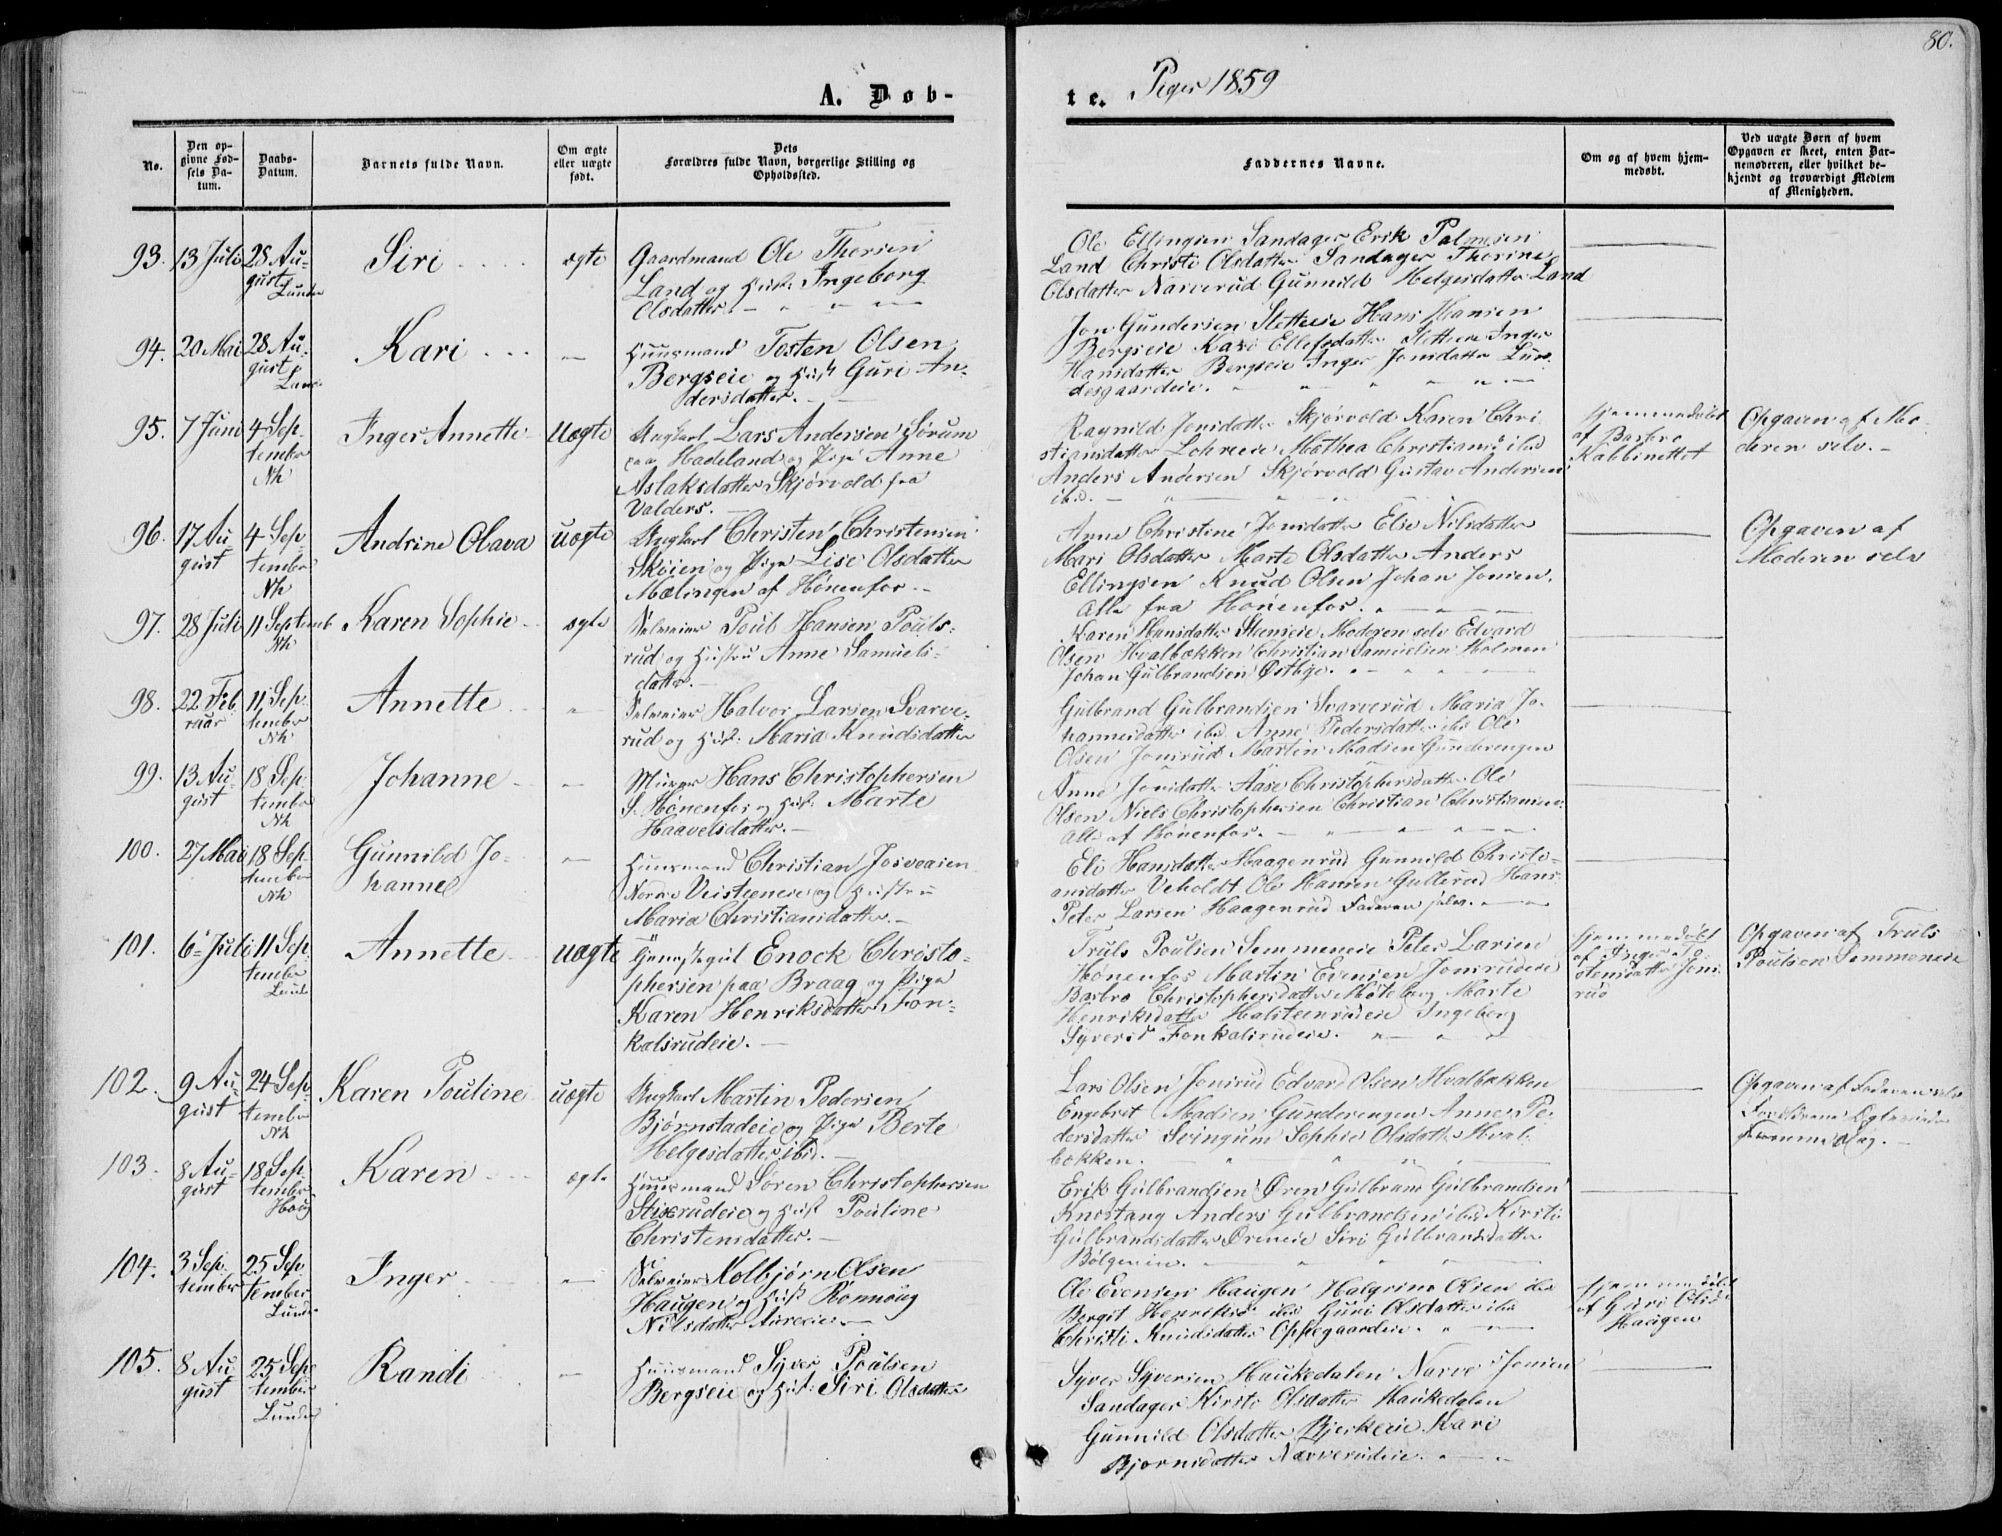 80.
A. Døb-
te. Piger 1859
No.
Den op-
givne Fød-
sels Da-
tum.
Daabs-
Datum.
Barnets fulde Navn.
Om ægte
eller uægte
født.
Dets
Forældres fulde Navn, borgerlige Stilling og
Opholdssted.
Faddernes Navne.
Om og af hvem hjem-
medøbt.
Ved uægte Børn af hvem
Opgaven er skeet, enten Bar-
nemoderen, eller hvilket be-
kjendt og troværdigt Medlem
af Menigheden.
93. 13 Juli 28 Au-
gust
Lunder
Siri
ægte
Gaardmand Ole Thorsen
Land og Hust. Ingeborg
Olsdatter
Ole Ellingsen Sandager Erik Palmesen
Land Christi Olsdatter Sandager Thorine
Olsdatter Narverud Gunnild Helgesdatter Land
94. 20 Mai 28 Au-
gust
Kari
Huusmand Tosten Olsen
Bergseie og Hust Guri An-
dersdatter.
Jon Gundersen Sletteeie Hans Hansen
Bergseie Kari Ellefsdatter Inger
Hansdatter Bergseie Inger Jonsdatter Lun-
desgaardeie.
95. 7 Juni 4 Sep-
tember
Nh
Inger Annette
Uægte
Ungkarl Lars Andersen Sørum
paa Hadeland og Pige Anne
Aslaksdatter Skjørvold fra
Valders.
Ragnild Jonsdatter Skjørvold Karen Chri-
stiansdatter Lohreeie Mathea Christians ibd
Anders Andersen Skjørvold Gustav Andersen
ibd.
Hjemmedøbt
af Barbro
Kabbinettet
Opgaven af Mo-
deren selv.
96. 17 Au-
gust
4 Sep-
tember
Nh
Andrine Olava
uægte
Ungkarl Christen Christensen
Skøien og Pige Lise Olsdatter
Mælingen af Hønenfos.
Anne Christine Jonsdatter Elie Nilsdatter
Mari Olsdatter Marte Olsdatter Anders
Ellingsen Knud Olsen Johan Jonsen.
Alle fra Hønenfos.
Opgaven af
Moderen selv
97. 28 Juli 11 Septemb
Nh
Karen Sophie
ægte
Selveier Poul Hansen Pouls-
rud og Hustru Anne Samuels-
datter.
Karen Hansdatter Steenseie Moderen selv Edvard
Olsen Hvalbækken Christian Samuelsen Holmen
Johan Gulbrandsen Østbye.
98. 22 Feb
raar
11 Sep-
tember
Nh
Annette
Selveier Halvor Larsen Svarve-
rud og Hust. Maria Knudsdatter
Gulbrand Gulbrandsen Svarverud Maria Jo-
hannesdatter ibd Anne Pedersdatter ibd Ole
Olsen Jonsrud Martin Madsen Gunderengen
99. 13 Au-
gust
18 Sep-
tember
Nh
Johanne
Murer Hans Christophersen
S. Hønenfos og Hust. Marte
Haavelsdatter.
Anne Jonsdatter Aase Christophersdatter Ole
Olsen Niels Christophersen Christian Christiansen
Alle af Hønenfos.
100. 27 Mai 18 Sep-
tember
Nh
Gunnild Jo-
hanne
Huusmand Christian
Nordre og Hustru
Maria Christiansdatter.
Eli Hansdatter Haagenrud Gunnild Christi-
ansdatter Veholdt Ole Hansen Gullerud Hans
Peter Larsen Haagenrud Faderen selv.
101. 6 Juli 11 Sep-
tember
Annette
uægte
Enock Christo-
phersen paa Braag og Pige
Karen Henriksdatter Fon-
kalsrudeie.
Truls Poulsen Semmeneie Peter Larsen
Hønenfos Martin Evensen Jonsrudeie
Barbro Christophersdatter Marte
Henriksdatter Halsteenrudeie Ingeborg
Syversd Fonkalsrudeie.
Hjemmedøbt
af Inger To-
stensdatter Jons-
rud
Opgaven af Truls
Poulsen Semmeneie
102. 9 Au-
gust
24 Sep-
tember
Nh
Karen Pouline
uægte
Ungkarl Martin Pedersen
Bjørnstadeie og Pige Berte
Helgesdatter ibd.
Lars Olsen Jonsrud Edvard Olsen Hvalbækken
Engebret Madsen Gunderengen Anne Pe-
dersdatter Svingum Sophie Olsdatter Hval-
bækken.
Opgaven af Faderen selv
103. 8 Au-
gust
18 Sep-
tember
Houg
Karen
ægte
Huusmand Søren Christophersen
og Hust Pouline
Christensdatter.
Erik Gulbrandsen Øren Gulbrand Gulbrandsen
Knestang Anders Gulbrandsen ibd Kirsti
Gulbrandsdatter Øreneie Siri Gulbrandsdatter
104. 3 Sep-
tember
25 Sep-
tember
Lunder
Inger
Selveier Kolbjørn Olsen
Haugen og Hust Rønnoug
Nilsdatter
Ole Evensen Haugen Halgrim Olsen ibd
Bergit Henriksd ibd Guri Olsdatter ibd
Christi Knudsdatter Oppegaardeie.
Hjemmedøbt
af Guri Olsd
Haugen
105. 8 Au-
gust
25 Sep-
tember
Lunder
Randi
Huusmand Syver Poulsen
Bergseie og Hust. Siri Olsdatter
Syver Syversen Haukedalen Narve Jonsen
Sandager Kirsti Olsdatter Haukedalen
Gunnild Olsdatter Bjerkeeie Kari
Bjørnsdatter Narverudeie.